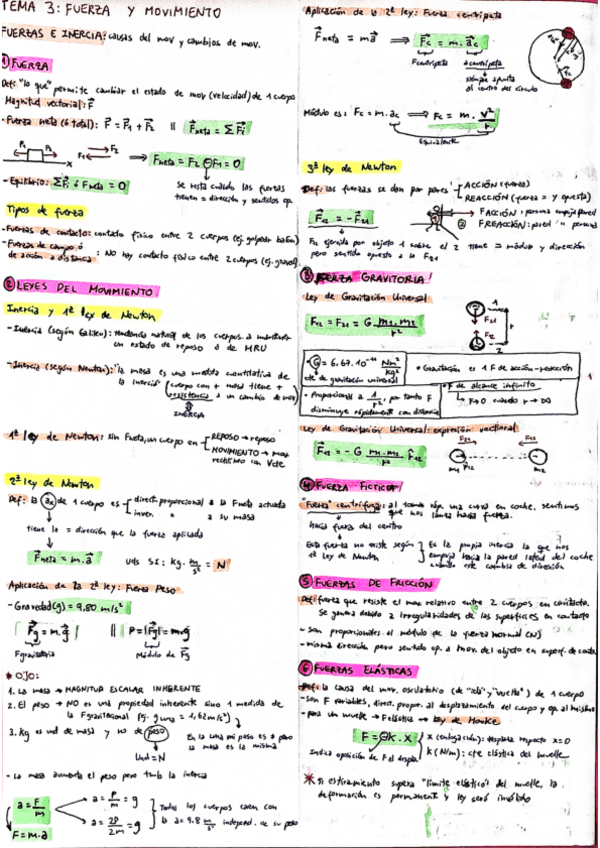 TEMA 3: FUERZA Y MOVIMIENTO
FUERZAS E INERCIA: causas del mov y cambios de mov.
① FUERZA
Def: "lo que" permite cambiar el estado de mov (velocidad) de 1 cuerpo
Magnitud vectorial: F⃗
- Fuerza neta (ó total): F⃗ = F⃗₁ + F⃗₂ || F⃗neta = ΣF⃗i
F₁ F₂ F₁ F₂ x ⇒ Fneta = F₂ ⊖ F₁ = 0
- Equilibrio: ΣF⃗i ó Fneta = 0
se resta cuando las fuerzas
tienen = dirección y sentidos op.
Tipos de fuerza
- Fuerzas de contacto: contacto físico entre 2 cuerpos (ej. golpear balón)
- Fuerzas de campo ó de acción a distancia: No hay contacto físico entre 2 cuerpos
② LEYES DEL MOVIMIENTO
Inercia y 1ª ley de Newton
- Inercia (según Galileo): tendencia natural de los cuerpos a mantenerse
en estado de reposo ó de MRU
- Inercia (según Newton): "la masa es una medida cuantitativa de
la inercia" (cuerpo con + masa tiene +
resistencia a un cambio de mov)
INERCIA
1ª ley de Newton: sin Fneta, un cuerpo en
REPOSO → reposo
MOVIMIENTO → mov
rectilíneo con v cte
2ª ley de Newton
Def: la a⃗ de 1 cuerpo es
direct. proporcional a la Fneta actuada
inver. " a su masa
tiene la = dirección que la fuerza aplicada
F⃗neta = m·a⃗ uds SI: kg · m/s² = N
Aplicación de la 2ª ley: Fuerza Peso
- Gravedad (g) = 9,80 m/s²
F⃗g = m·g⃗ || P = |F⃗g| = m·g
Fgravitatoria Módulo de F⃗g
* OJO:
1. La masa → MAGNITUD ESCALAR INHERENTE
2. El peso → NO es una propiedad inherente sino 1 medida de
la Fgravitacional (ej. g luna = 1,62 m/s²)
3. Kg es ud de masa y no de peso
Und = N
En la luna mi peso es ≠ pero
la masa es la misma
- La masa aumenta el peso pero tmb la inercia
a = F/m
F = m·a
a = P/m = g
a = 2P/2m = g
Todos los cuerpos caen con
la a = 9.8 m/s² independ. de su peso
Aplicación de la 2ª ley: Fuerza centrípeta
F⃗neta = m a⃗ ⇒ F⃗c = m·a⃗c
Fcentrípeta a centrípeta
siempre apunta
al centro del círculo
Módulo es: Fc = m·ac ⇒ Fc = m· v²/r
Equivalente
3ª ley de Newton
Def: las fuerzas se dan por pares
ACCIÓN (fuerza)
REACCIÓN (fuerza = y opuesta)
F⃗₁₂ = -F⃗₂₁
F ACCIÓN: persona empuja pared
② F REACCIÓN: pared " a persona
F₁₂ ejercida por objeto 1 sobre el 2 tiene = módulo y dirección
pero sentido opuesto a la F₂₁
③ FUERZA GRAVITORIA
Ley de Gravitación Universal
F₁₂ = F₂₁ = G m₁·m₂/r²
F₂₁ F₁₂ r
• G = 6,67·10⁻¹¹ Nm²/kg²
cte de gravitación universal
• Gravitación es 1 F de acción-reacción
- Proporcional a 1/r², por tanto F
disminuye rápidamente con distancia
• F de alcance infinito
↳ F→0 cuando r→∞
Ley de Gravitación Universal: expresión vectorial
F⃗₁₂ = -G m₁·m₂/r² r̂₁₂
F₂₁ F₁₂
m₁ r² m₂
④ FUERZA FICTICIA
"Fuerza" centrífuga: al tomar ráp. una curva en coche, sentimos
que nos lanza hacia fuera.
hacia fuera del centro
Esta fuerza no existe según
1ª ley de Newton
Es la propia inercia la que nos
empuja hacia la pared lateral del coche
cuando este cambia de dirección
⑤ FUERZAS DE FRICCIÓN
Def: fuerza que resiste el mov relativo entre 2 cuerpos en contacto.
Se genera debido a irregularidades de las superficies en contacto
- son proporcionales al módulo de la fuerza normal (N)
- misma dirección pero sentido op. a mov. del objeto en superf. de
⑥ FUERZAS ELÁSTICAS
Def: la causa del mov. oscilatorio (de "ida" y "vuelta") de 1 cuerpo
- son F variables, direct. propor. al desplazamiento del cuerpo y op. al mismo
- para un muelle → Felástica → Ley de Hooke
F = ⊖K·X
x (elongación): desplaza respecto x=0
K (N/m): cte elástica del muelle
Indica oposición de F al despla.
* si estiramiento supera "límite elástico" del muelle, la
deformación es permanente y ley será inválida